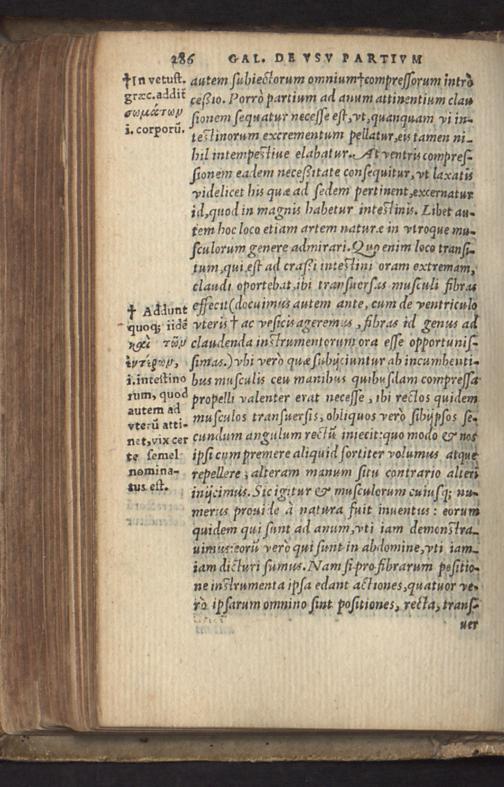 286 GAL. DE VSV PARTIVM
autem subiectorum omnium†compressorum intrò
ceßio. Porrò partium ad anum attinentium clau
sionem sequatur necesse est, vt, quanquam vi in-
testinorum excrementum pellatur, eis tamen ni-
hil intempestiue elabatur. At ventris compres-
sionem eadem neceßitate consequitur, vt laxatis
videlicet his quæ ad sedem pertinent, excernatur
id, quod in magnis habetur intestinis. Libet au-
tem hoc loco etiam artem naturæ in vtroque mu-
sculorum genere admirari. Quo enim loco transi-
tum, qui est ad craßi intestini oram extremam,
claudi oportebat, ibi transuersas musculi fibras
effecit (docuimus autem ante, cum de ventriculo
vteris † ac vesicis ageremus, fibras id genus ad
claudenda instrumentorum ora esse opportunis-
simas.) vbi verò quæ subijciuntur ab incumbenti-
bus musculis ceu manibus quibusdam compressa
propelli valenter erat necesse, ibi rectos quidem
musculos transuersis, obliquos verò sibijpsos se-
cundum angulum rectū iniecit: quo modo & nos
ipsi cum premere aliquid fortiter volumus atque
repellere, alteram manum situ contrario alteri
inijcimus. Sic igitur & musculorum cuiusq; nu-
merus prouide à natura fuit inuentus: eorum
quidem qui sunt ad anum, vti iam demonstra-
uimus: eorū verò qui sunt in abdomine, vti iam
iam dicturi sumus. Nam si pro fibrarum positio-
ne instrumenta ipsa edant actiones, quatuor ve-
rò ipsarum omnino sint positiones, recta, trans-
uer
†In vetust.
græc. addit
σωμάτων
i. corporū.
† Addunt
quoq; iidē
καὶ τῶν
ἐντέρων,
i. intestino
rum, quod
autem ad
vterū atti-
net, vix cer
te semel
nomina-
tus est.